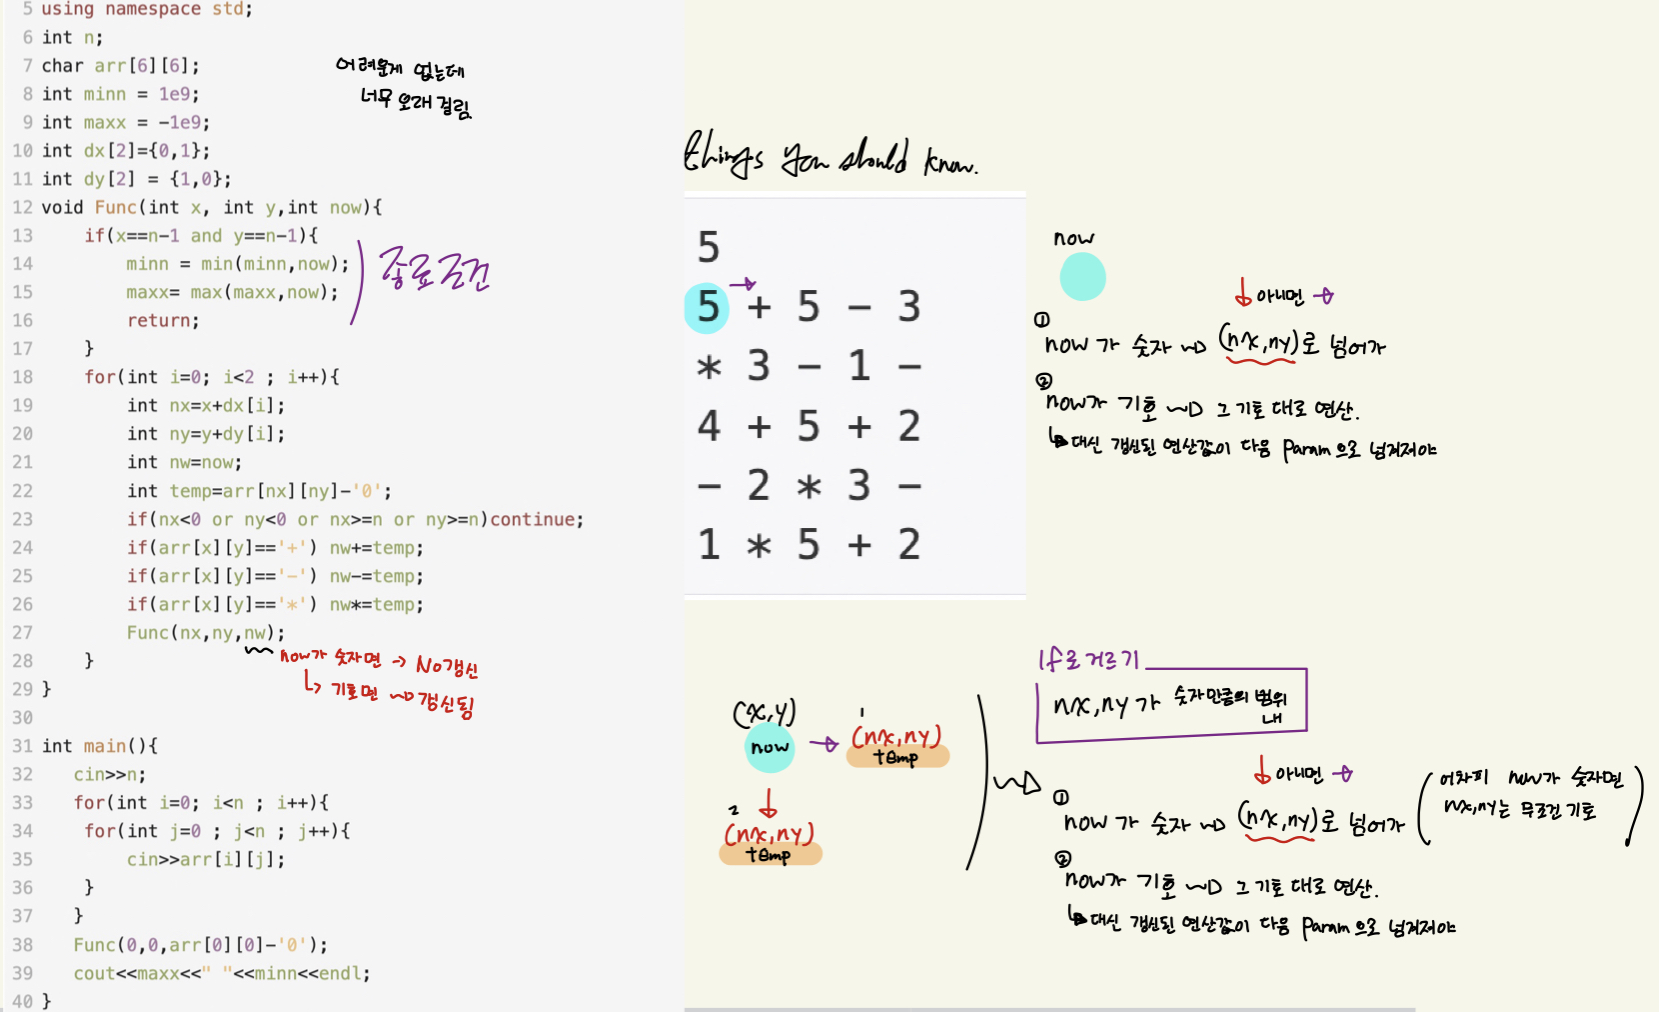 5 using namespace std;
6 int n;
7 char arr[6][6];
8 int minn = 1e9;
9 int maxx = -1e9;
10 int dx[2]={0,1};
11 int dy[2] = {1,0};
12 void Func(int x, int y,int now){
13 if(x==n-1 and y==n-1){
14 minn = min(minn,now);
15 maxx= max(maxx,now);
16 return;
17 }
18 for(int i=0; i<2 ; i++){
19 int nx=x+dx[i];
20 int ny=y+dy[i];
21 int nw=now;
22 int temp=arr[nx][ny]-'0';
23 if(nx<0 or ny<0 or nx>=n or ny>=n)continue;
24 if(arr[x][y]=='+') nw+=temp;
25 if(arr[x][y]=='-') nw-=temp;
26 if(arr[x][y]=='*') nw*=temp;
27 Func(nx,ny,nw);
28 }
29 }
30
31 int main(){
32 cin>>n;
33 for(int i=0; i<n ; i++){
34 for(int j=0 ; j<n ; j++){
35 cin>>arr[i][j];
36 }
37 }
38 Func(0,0,arr[0][0]-'0');
39 cout<<maxx<<" "<<minn<<endl;
40 }
어려운게 없는데
너무 오래 걸림
종료조건
now가 숫자면 → No갱신
↳ 기호면 → 갱신됨
things you should know.
5
5 + 5 - 3
* 3 - 1 -
4 + 5 + 2
- 2 * 3 -
1 * 5 + 2
now
↓ 아니면 →
①
now가 숫자 → (nx,ny)로 넘어가
②
now가 기호 → 그 기호 대로 연산.
↳ 대신 갱신된 연산값이 다음 param으로 넘겨져야
(x,y)
now → 1
(nx,ny)
temp
2 ↓
(nx,ny)
temp
If로 거르기
nx,ny가 숫자만큼의 범위
내
↓ 아니면 →
①
now가 숫자 → (nx,ny)로 넘어가
(어차피 now가 숫자면
nx,ny는 무조건 기호)
②
now가 기호 → 그 기호 대로 연산.
↳ 대신 갱신된 연산값이 다음 param으로 넘겨져야